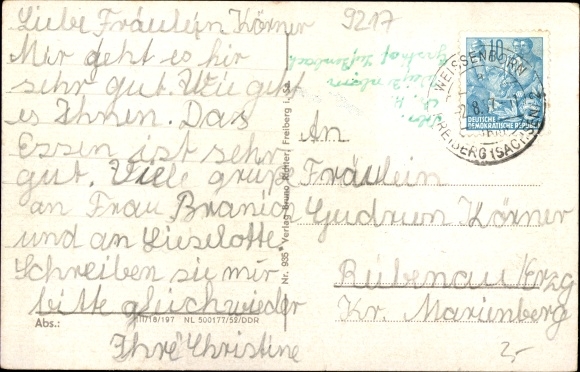 Liebe Fräulein Körner
Mir geht es hir
sehr gut. Wie geht
es Ihnen. Das
Essen ist sehr
gut. Viele grüß
an Frau
und an Lieselotte.
Schreiben sie mir
bitte gleich wieder
Ihre Christine
Abs.:
III/18/197 NL 500177/52/DDR
Nr. 935 * Verlag Bruno Richter, Freiberg i. Sa.
9217
10
DEUTSCHE
DEMOKRATISCHE REPUBLIK
WEISSENBORN
FREIBERG (SACHSEN) 2
An
Fräulein
Gudrun Körner
Rübenau/Erzg
Kr. Marienberg
2,-